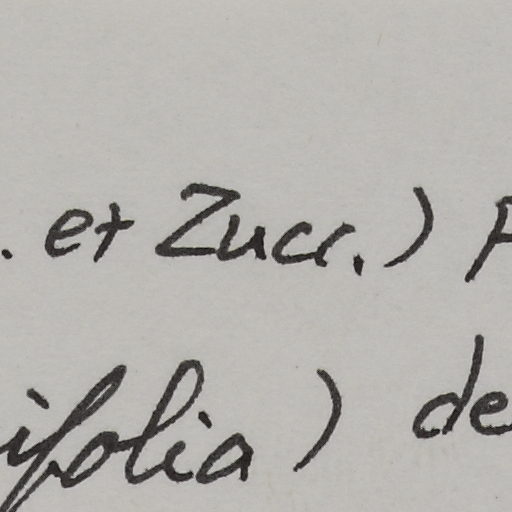 . et Zucr.) P
ifolia) de